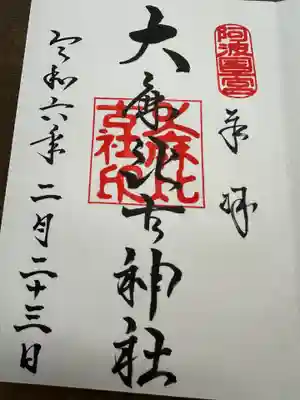 阿波一宮
奉拝
大麻比古神社
大麻比古社印
令和六年二月二十三日